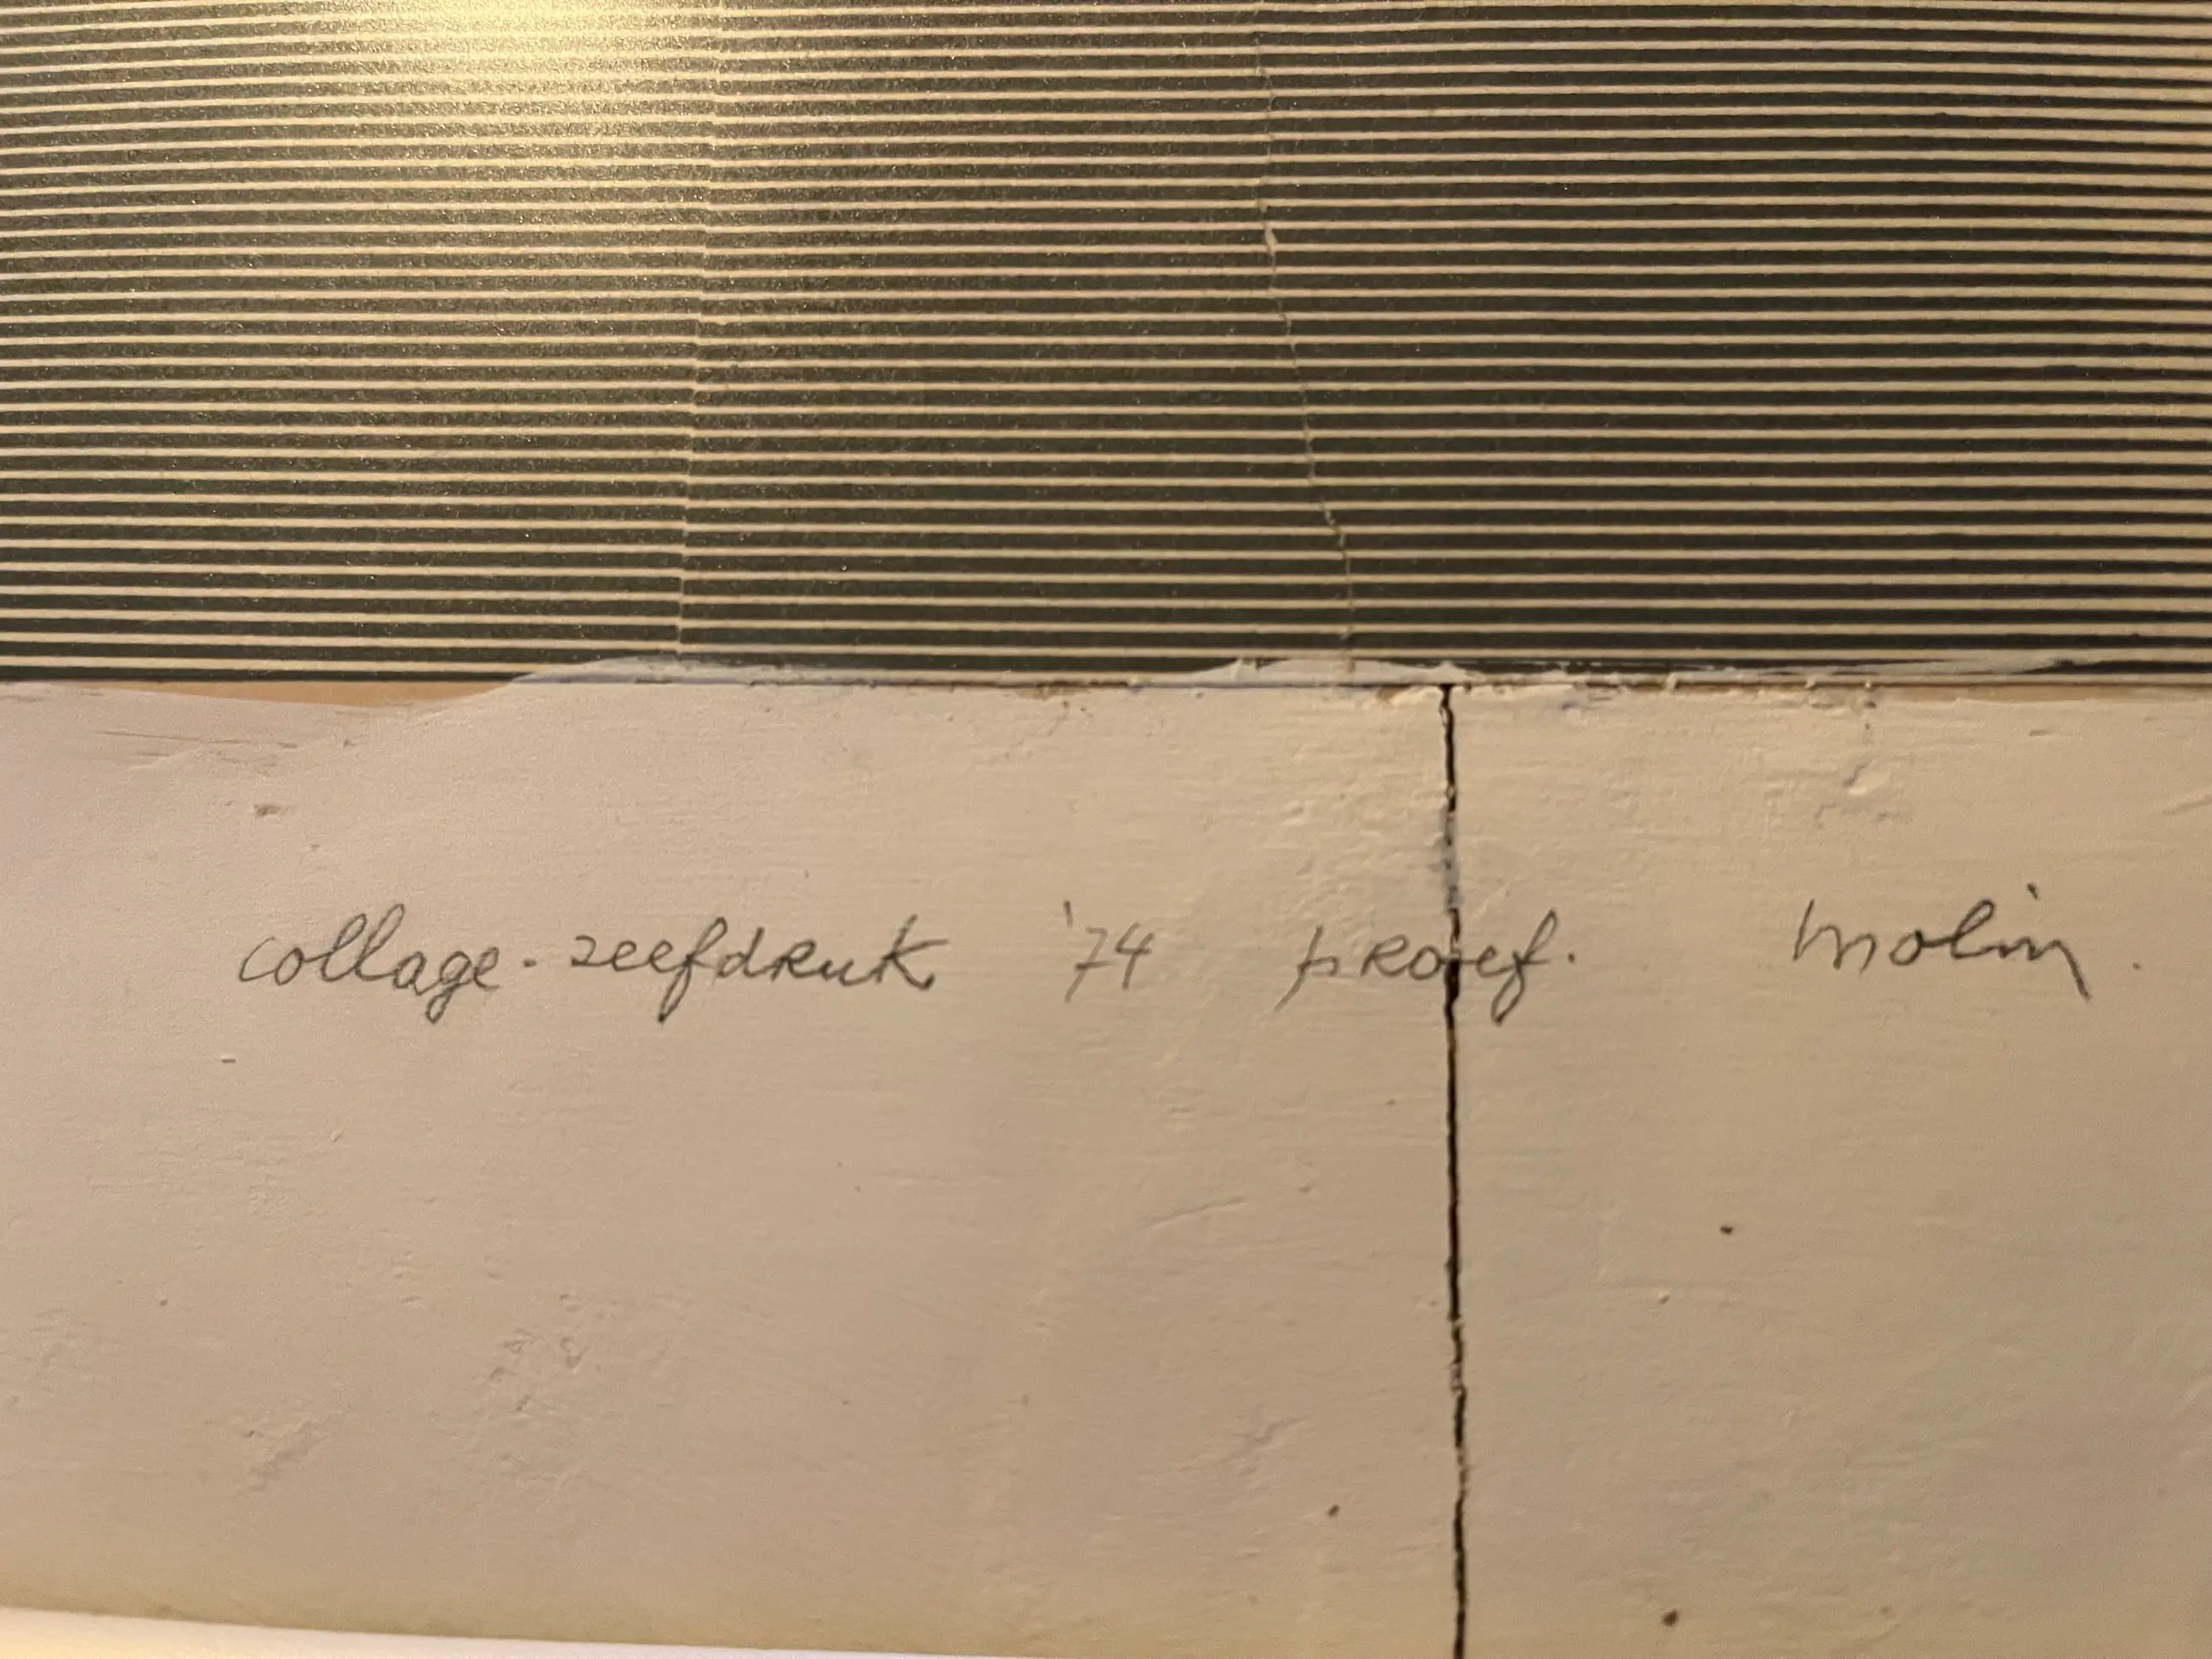 collage-zeefdruk '74 proef. Molin.